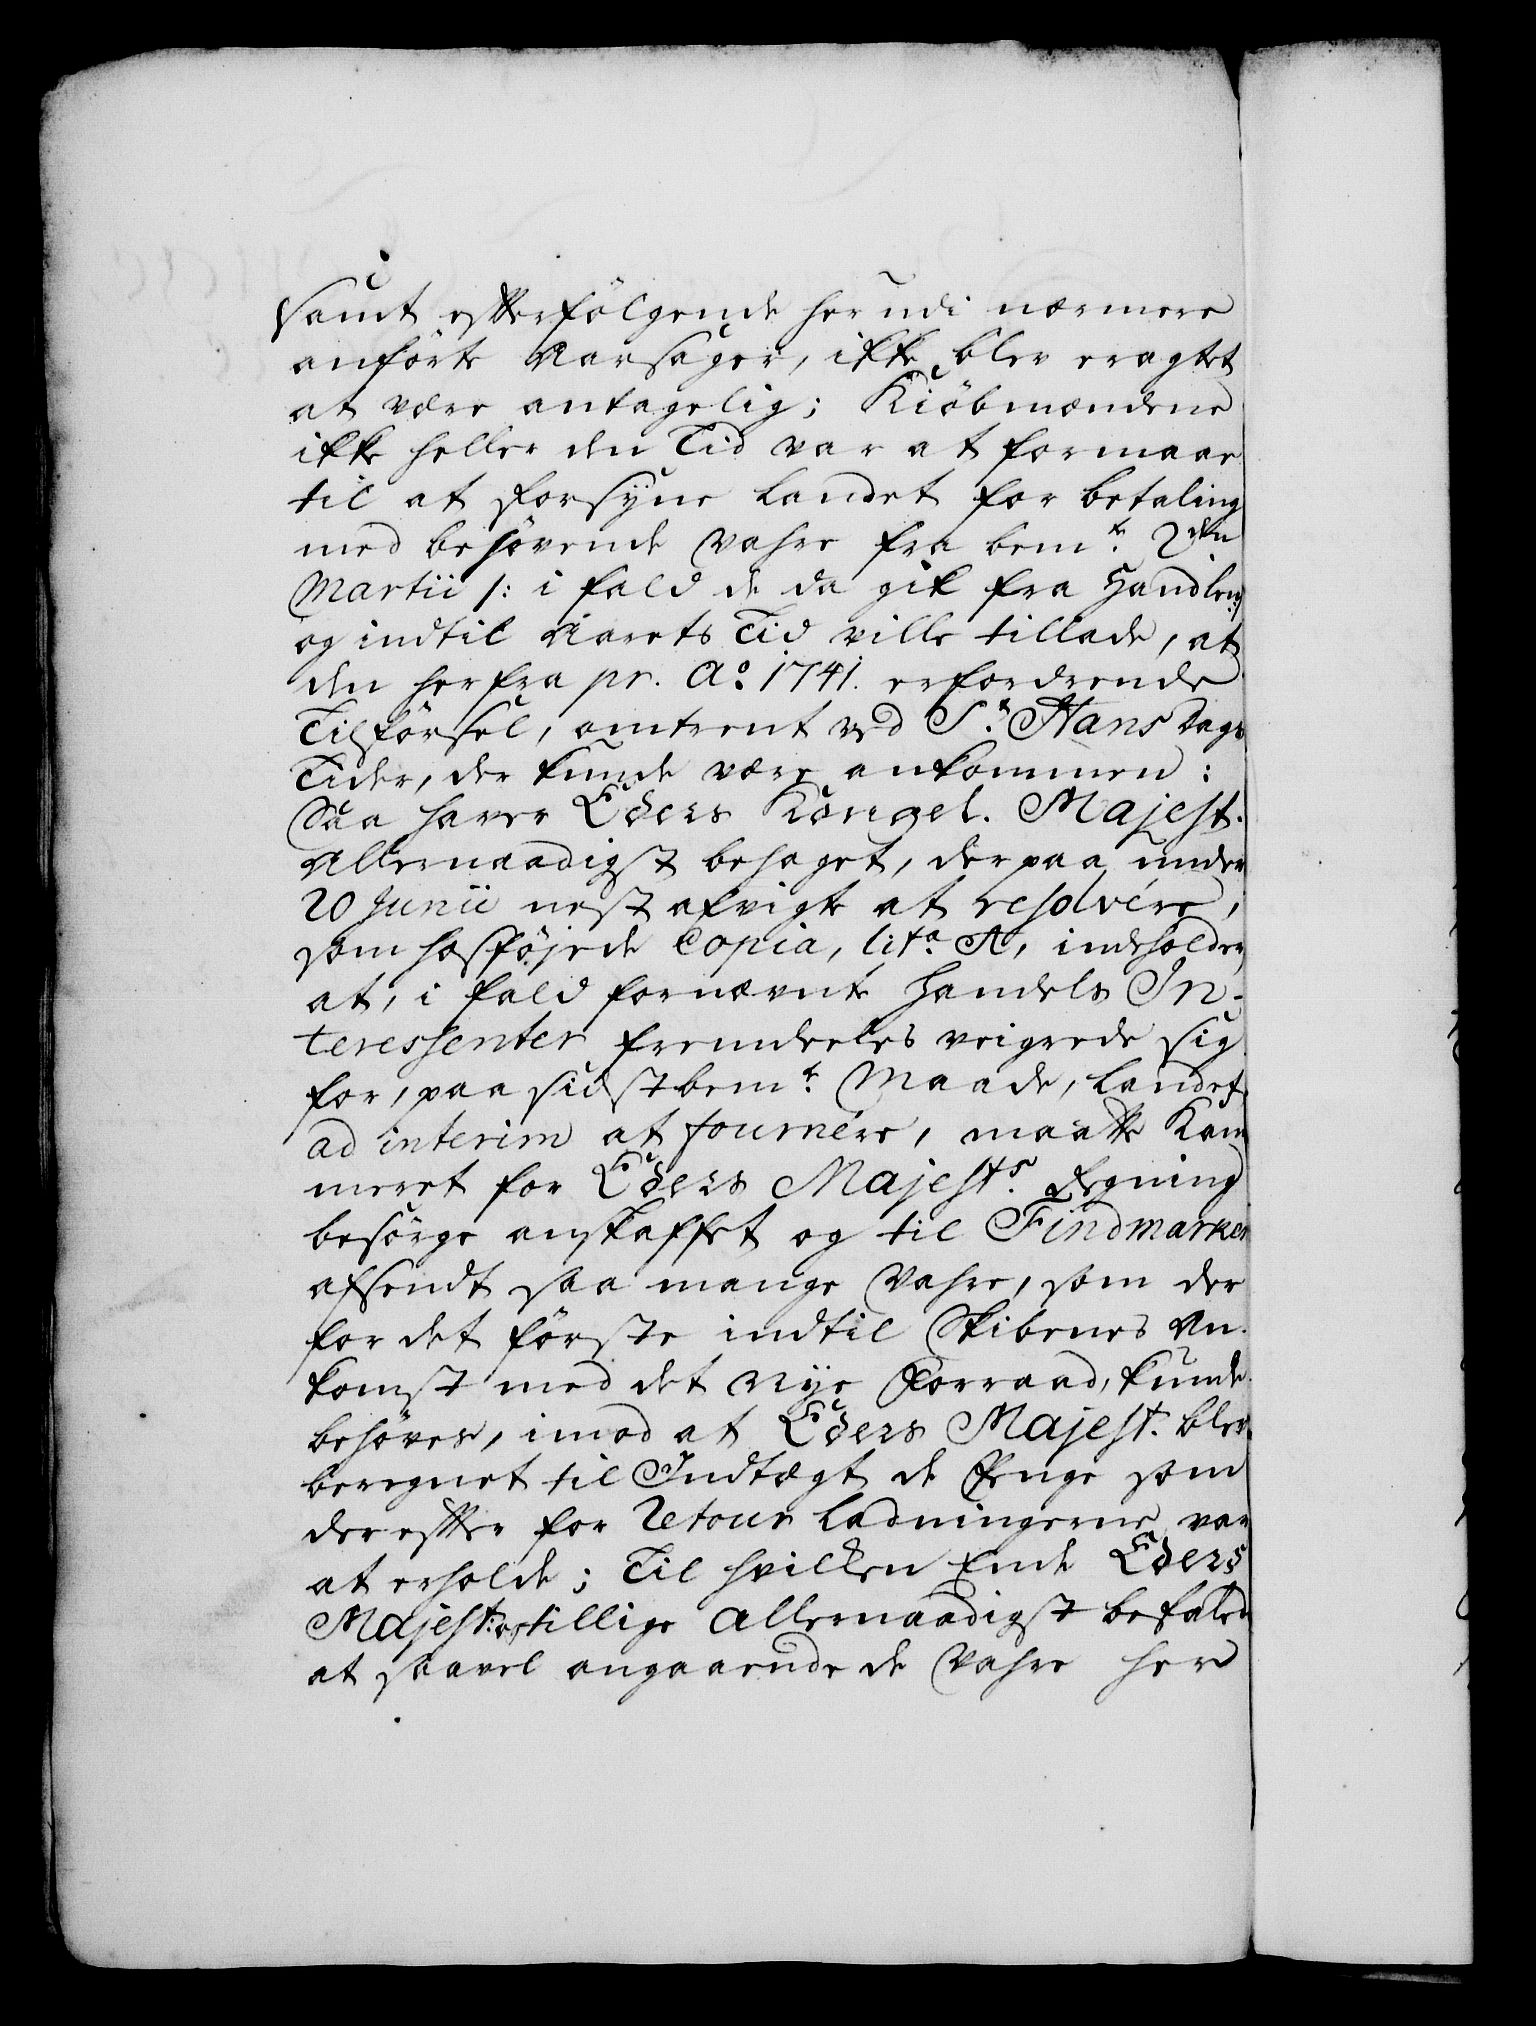 samt efterfölgende her udi nærmere
anförte Aarsager, ikke blev eragtet
at være antagelig; Kiöbmændene
ikke heller den Tid var at formaae
til at forsÿne Landet for betaling
med behövende Vahre fra bemte. 2den
Martii /: i fald de da gik fra Handlen,
og indtil Aarets Tid ville tillade, at
den herfra pr. Ao. 1741. erfordrende
Tilförsel, omtrent ved St. Hans Dags
Tider, der kunde være ankommen :
Saa haver Eders Kongel. Majest.
Allernaadigst behaget, derpaa under
20 Junii nest afvigte at resolvére,
som hosföjede Copia, lita. A, indeholder,
at, i fald fornævnte Handels In-
teressenter fremdeeles veigrede sig
for, paa sidstbemte. Maade, Landet
ad interim at fournére, maatte Kam
meret for Eders Majests. Regning
besörge anskaffet og til Findmarken
afsendt saa mange Vahre, som der
for det förste indtil Skibenes An-
komst med det Nÿe Forraad, kunde
behöves, imod at Eders Majest. blev
beregnet til Indtægt de Penge som
derefter for Retour Ladningerne var
at erholde; Til hvilken Ende Eders
Majest: og tillige Allernaadigst befalede
at saavel angaaende de Vahre her